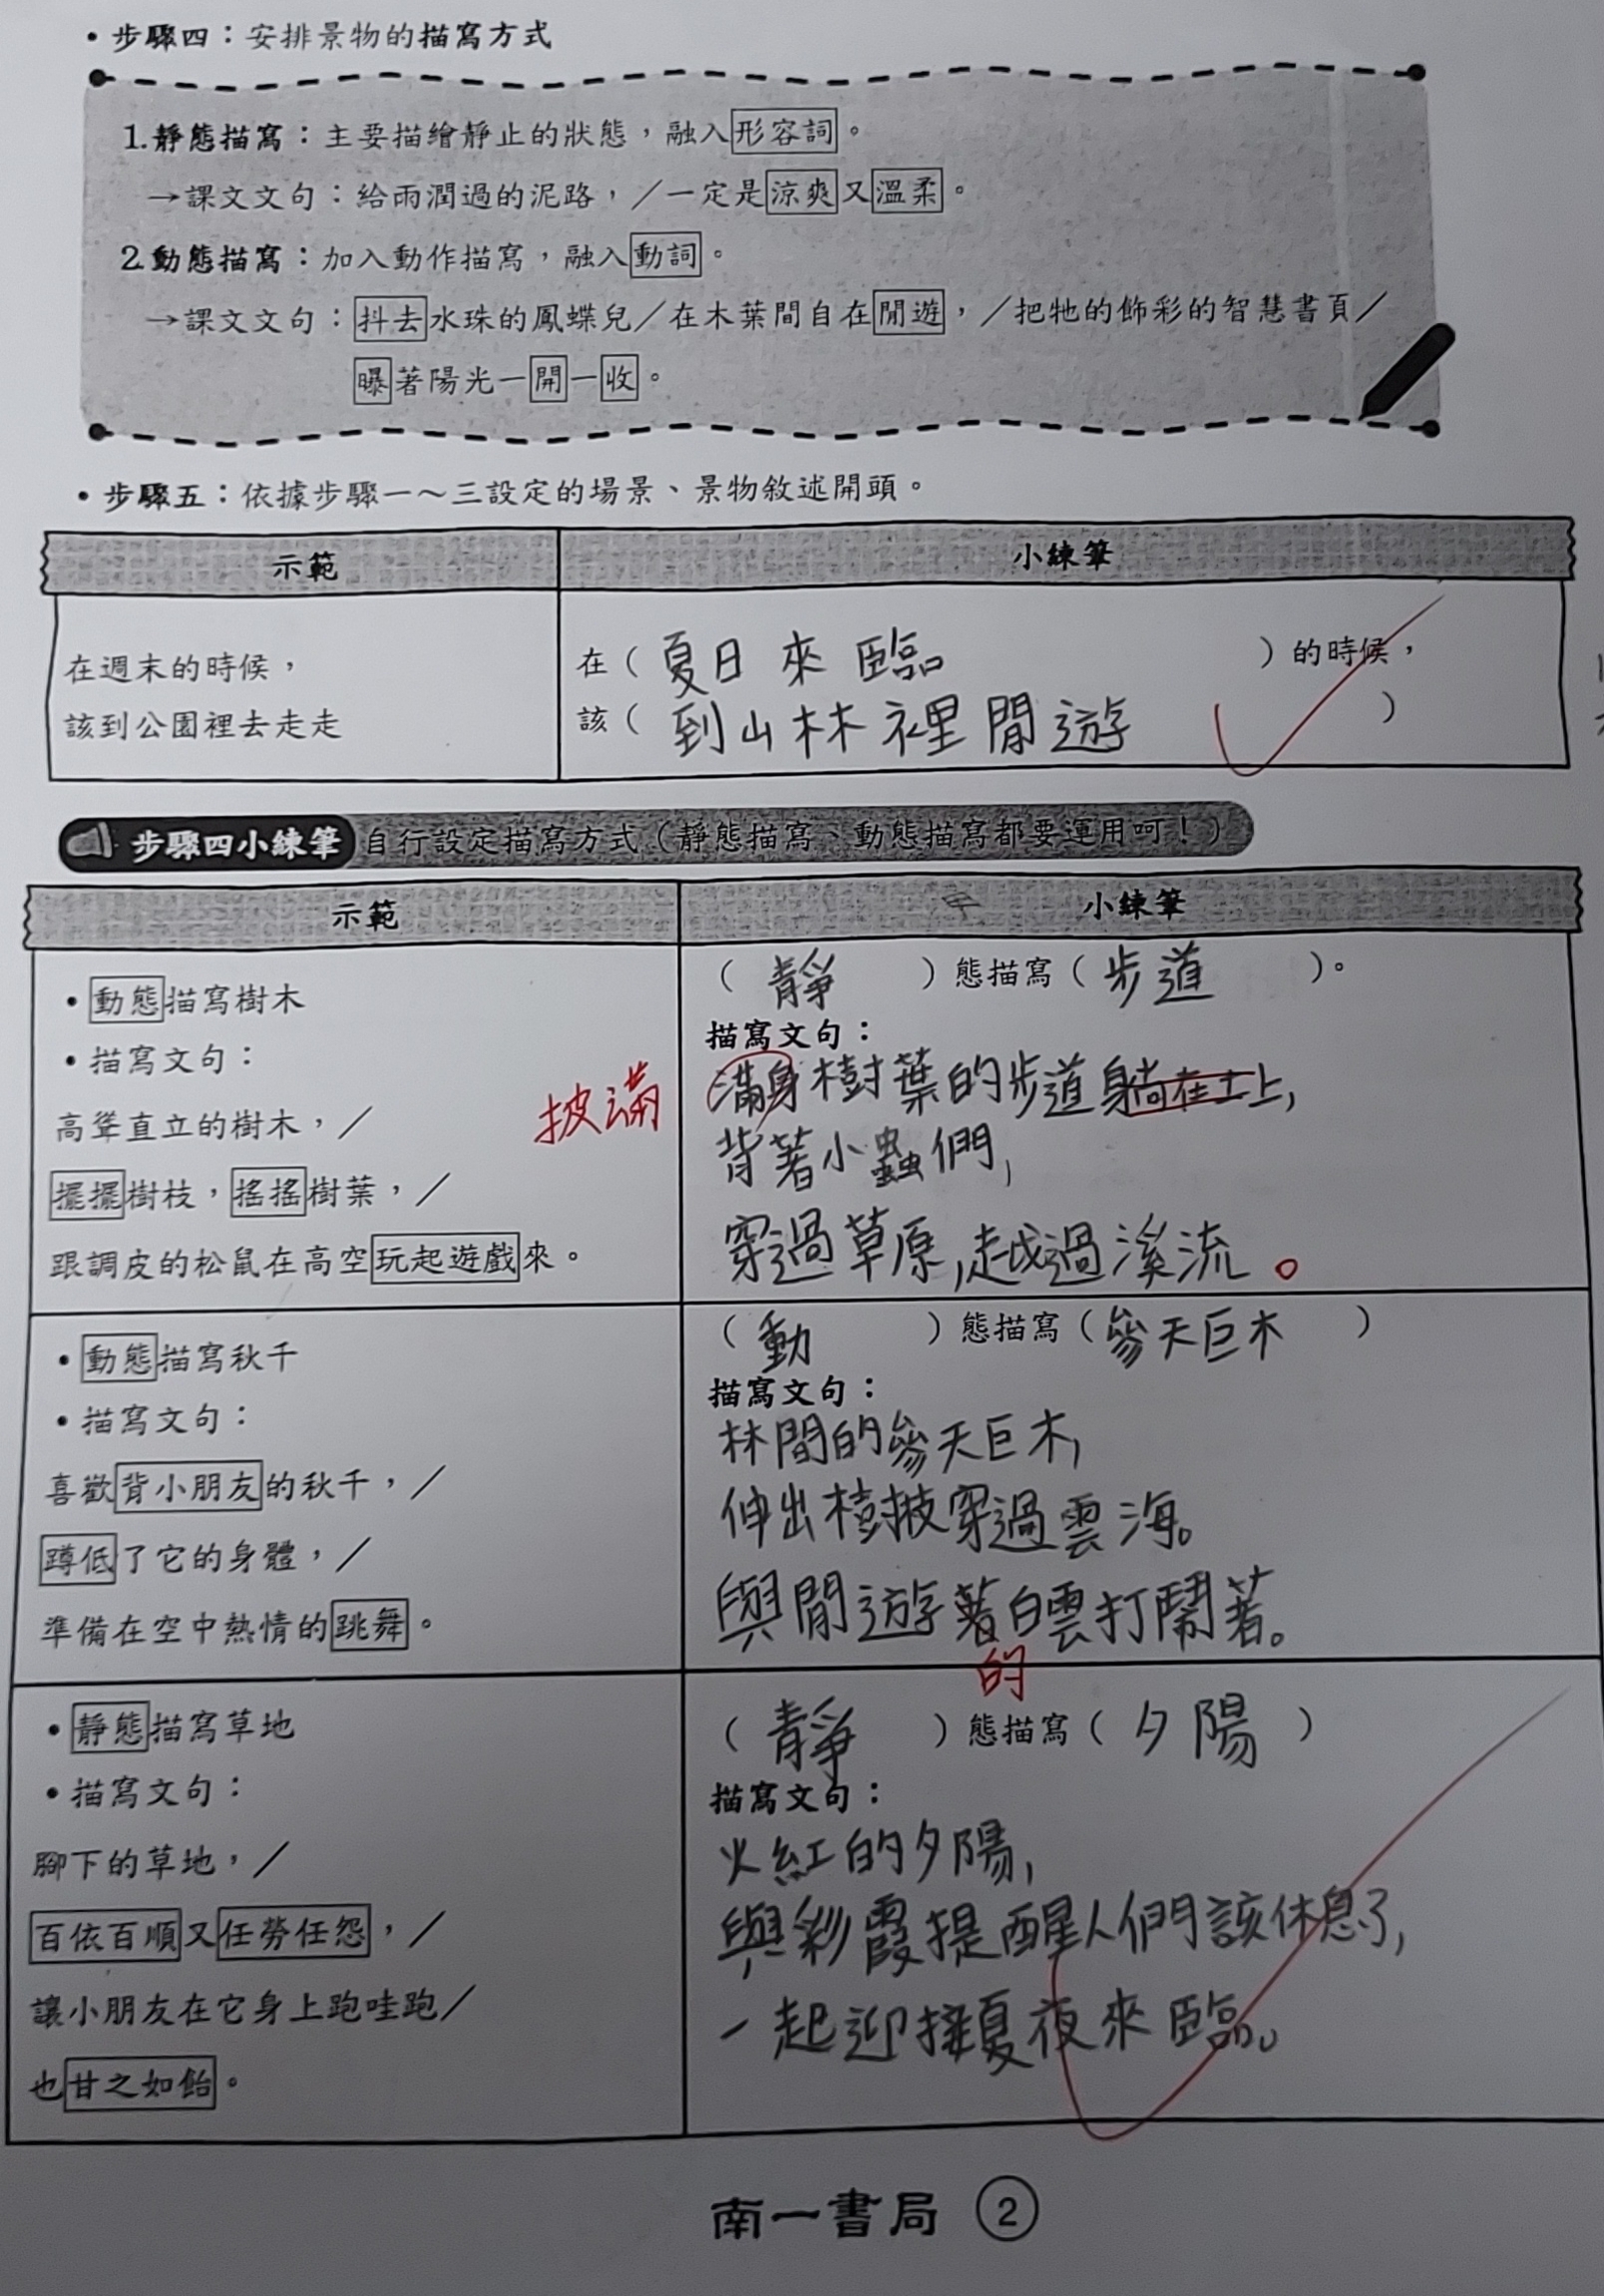 •步驟四：安排景物的描寫方式
1.靜態描寫：主要描繪靜止的狀態，融入形容詞。
→課文文句：給雨潤過的泥路，／一定是涼爽又溫柔。
2.動態描寫：加入動作描寫，融入動詞。
→課文文句：抖去水珠的鳳蝶兒／在木葉間自在閒遊，／把牠的飾彩的智慧書頁／
曝著陽光一開一收。
•步驟五：依據步驟一～三設定的場景、景物敘述開頭。
示範
小練筆
在週末的時候，
該到公園裡去走走
在（夏日來臨）的時候，
該（到山林裡閒遊）
步驟四小練筆 自行設定描寫方式（靜態描寫、動態描寫都要運用呵！）
示範
小練筆
•動態描寫樹木
•描寫文句：
高聳直立的樹木，／
擺擺樹枝，搖搖樹葉，／
跟調皮的松鼠在高空玩起遊戲來。
（靜）態描寫（步道）。
描寫文句：
披滿
滿身樹葉的步道躺在土上，
背著小蟲們，
穿過草原，越過溪流。
•動態描寫秋千
•描寫文句：
喜歡背小朋友的秋千，／
蹲低了它的身體，／
準備在空中熱情的跳舞。
（動）態描寫（參天巨木）
描寫文句：
林間的參天巨木，
伸出樹披穿過雲海。
與閒遊著白雲打鬧著。
的
•靜態描寫草地
•描寫文句：
腳下的草地，／
百依百順又任勞任怨，／
讓小朋友在它身上跑哇跑／
也甘之如飴。
（靜）態描寫（夕陽）
描寫文句：
火紅的夕陽，
與彩霞提醒人們該休息了，
一起迎接夏夜來臨。
南一書局 2